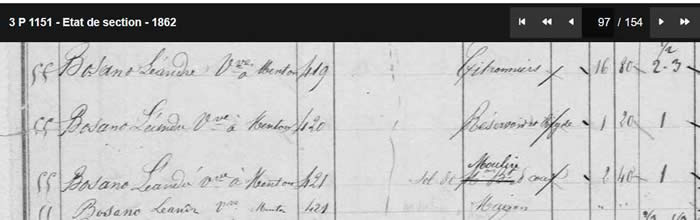 3 P 1151 - Etat de section - 1862
97 / 154
1/2
55 Bosano Léandre Vve à Menton 419 Citronniers 16 80 2-3
55 Bosano Léandre Vve à Menton 420 Réservoir 1 20 1
Moulin
55 Bosano Léandre Vve à Menton 421 Sol de 2 40 1
55 Bosano Leandre Vve Menton 421 Magon " "